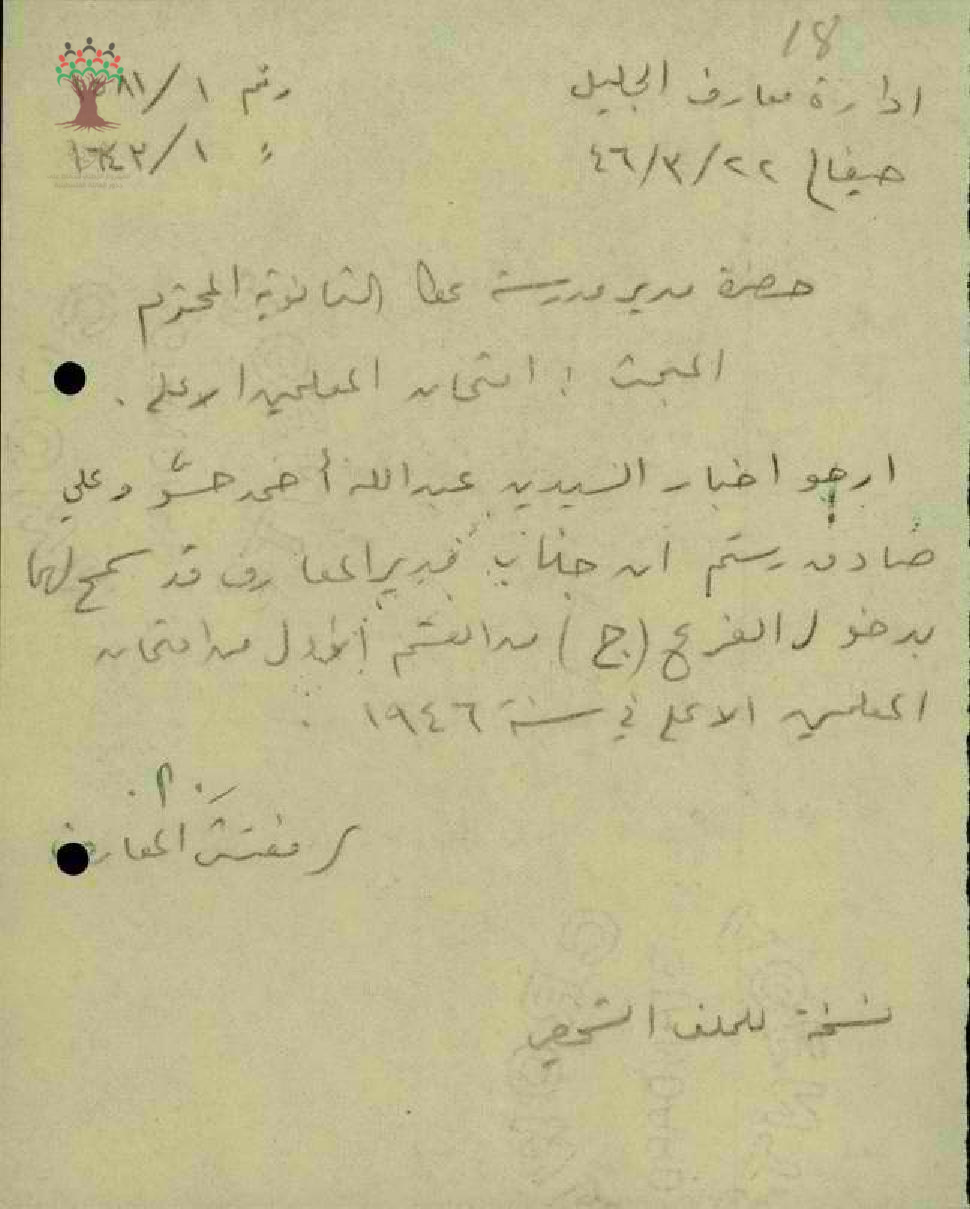 18
ادارة معارف الجليل
رقم ١/
حيفا في ٢٢/٣/٤٦
١/١٦٤٢
حضرة مدير مدرسة عكا الثانوية المحترم
المبحث : امتحان المعلمين الاعلى .
ارجو اخبار السيدين عبدالله أحمد حشّو وعلي
صادق رستم ان جناب مدير المعارف قد سمح لهما
بدخول الفرع (ج) من القسم الاول من امتحان
المعلمين الاعلى في سنة ١٩٤٦ .
مفتش المعارف
نسخة للملف الشخصي